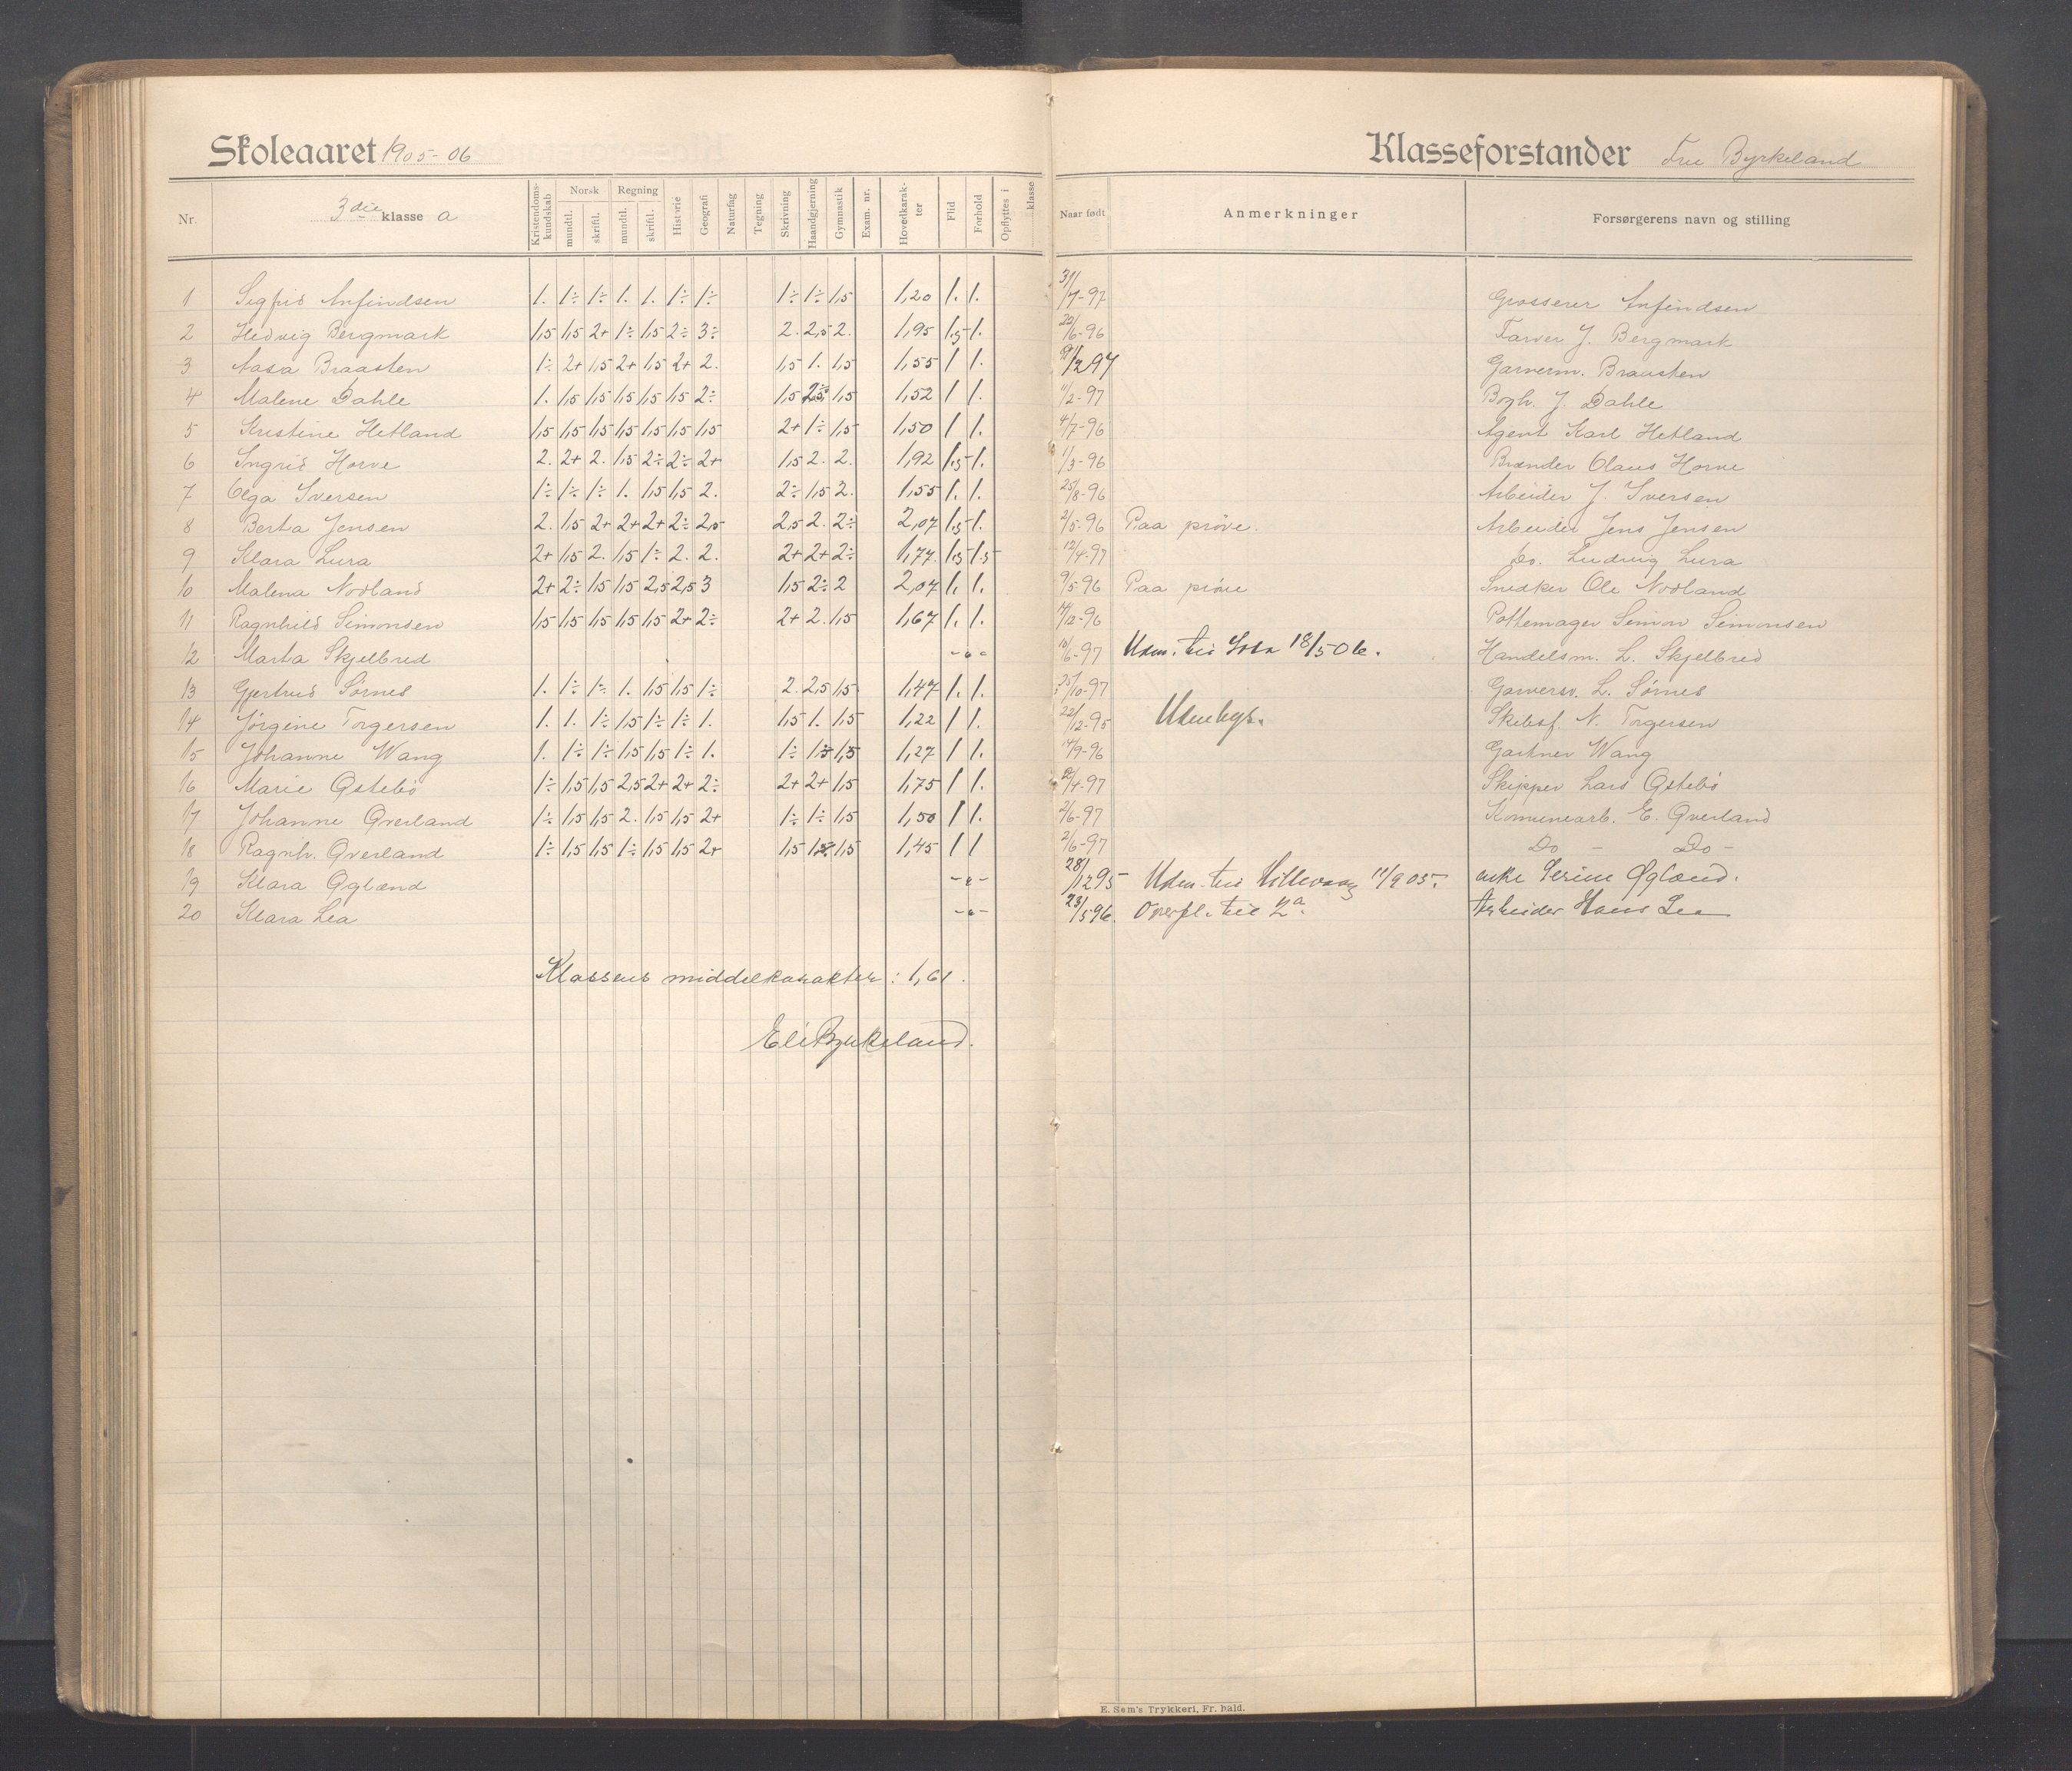 Skoleaaret 1905-06
Klasseforstander Fru Byrkeland
Nr. 3die klasse a Kristendoms-kundskab Norsk mundtl. skriftl. Regning mundtl. skriftl. Historie Geografi Naturfag Tegning Skrivning Haandgjerning Gymnastik Exam. nr. Hovedkarakter Flid Forhold Opflyttes i klasse Naar født Anmerkninger Forsørgerens navn og stilling
1 Sigfrid Anfindsen 1. 1÷ 1÷ 1. 1. 1÷ 1÷ 1÷ 1÷ 1,5 1,20 1. 1. 31/7-97 Grosserer Anfindsen
2 Hedvig Bergmark 1,5 1,5 2+ 1÷ 1,5 2÷ 3÷ 2. 2,5 2. 1,95 1,5 1. 22/6-96 Farver J. Bergmark
3 Aasa Braasten 1÷ 2+ 1,5 2+ 1,5 2+ 2. 1,5 1. 1,5 1,55 1 1. Garverm. Braasten
4 Malene Dahle 1. 1,5 1,5 1,5 1,5 1,5 2÷ 1,5 1,5 1,52 1 1. 11/2-97 Bogh. J. Dahle
5 Kristine Hetland 1,5 1,5 1,5 1,5 1,5 1,5 1,5 2+ 1÷ 1,5 1,50 1 1. 4/7-96 Agent Karl Hetland
6 Ingrid Horve 2. 2+ 2. 1,5 2÷ 2÷ 2+ 1,5 2. 2. 1,92 1,5 1. 1/3-96 Brænder Olaus Horve
7 Olga Iversen 1÷ 1÷ 1÷ 1. 1,5 1,5 2. 2÷ 1,5 2. 1,55 1. 1. 25/8-96 Arbeider J. Iversen
8 Berta Jensen 2. 1,5 2+ 2+ 2+ 2÷ 2,5 2,5 2. 2÷ 2,07 1,5 1. 2/5-96 Paa prøve. Arbeider Jens Jensen
9 Klara Lura 2+ 1,5 2. 1,5 1÷ 2. 2. 2+ 2+ 2÷ 1,77. 1,5 1,5 12/4-97 Do. Ludvig Lura
10 Malena Nodland 2+ 2÷ 1,5 1,5 2,5 2,5 3 1,5 2÷ 2 2,07 1. 1. 9/5-96 Paa prøve Snedker Ole Nodland
11 Ragnhild Simonsen 1,5 1,5 1,5 1,5 1,5 2+ 2÷ 2+ 2. 1,5 1,67 1. 1. 14/12-96 Pottemager Simon Simonsen
12 Marta Skjelbred -"- 10/6-97 Udm. til 18/5 06. Handelsm. L. Skjelbred
13 Gjertrud Sørnes 1. 1÷ 1÷ 1. 1,5 1,5 1÷ 2. 2,5 1,5 1,47 1. 1. 25/10-97 Garversv. L. Sørnes
14 Jørgine Torgersen 1. 1. 1÷ 1,5 1÷ 1÷ 1. 1,5 1. 1,5 1,22 1 1. 22/12-95 Udenbys. Skibsf. N. Torgersen
15 Johanne Wang 1. 1÷ 1÷ 1,5 1,5 1÷ 1. 1÷ 1,5 1,5 1,27 1 1. 14/9-96 Gartner Wang
16 Marie Østebø 1÷ 1,5 1,5 2,5 2+ 2+ 2÷ 2+ 2+ 1,5 1,75 1 1. Skipper Lars Østebø
17 Johanne Qverland 1÷ 1,5 1,5 2. 1,5 1,5 2+ 1÷ 1÷ 1,5 1,50 1 1. 2/6-97 Komunearb. E. Qverland
18 Ragnh. Qverland 1÷ 1,5 1,5 1÷ 1,5 1,5 2+ 1,5 1,5 1,45 1 1 2/6-97 Do - Do -
19 Klara Øglænd -"- 28/12 95 Udm. til Hillevaag 11/9 05. enke Serine Øglænd.
20 Klara Lea -"- 23/5 96. Overfl. til 2a. Arbeider Hans Lea
Klassens middelkarakter: 1,61.
Eli Byrkeland.
E. Sem's Trykkeri, Fr. hald.